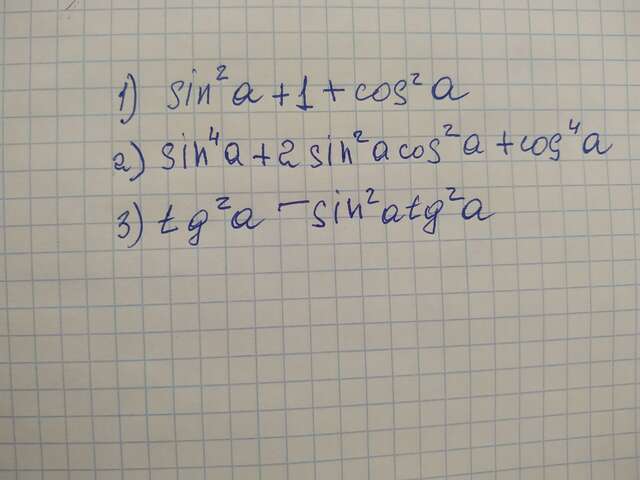 1) sin²a + 1 + cos²a
2) sin⁴a + 2 sin²a cos²a + cos⁴a
3) tg²a - sin²a tg²a